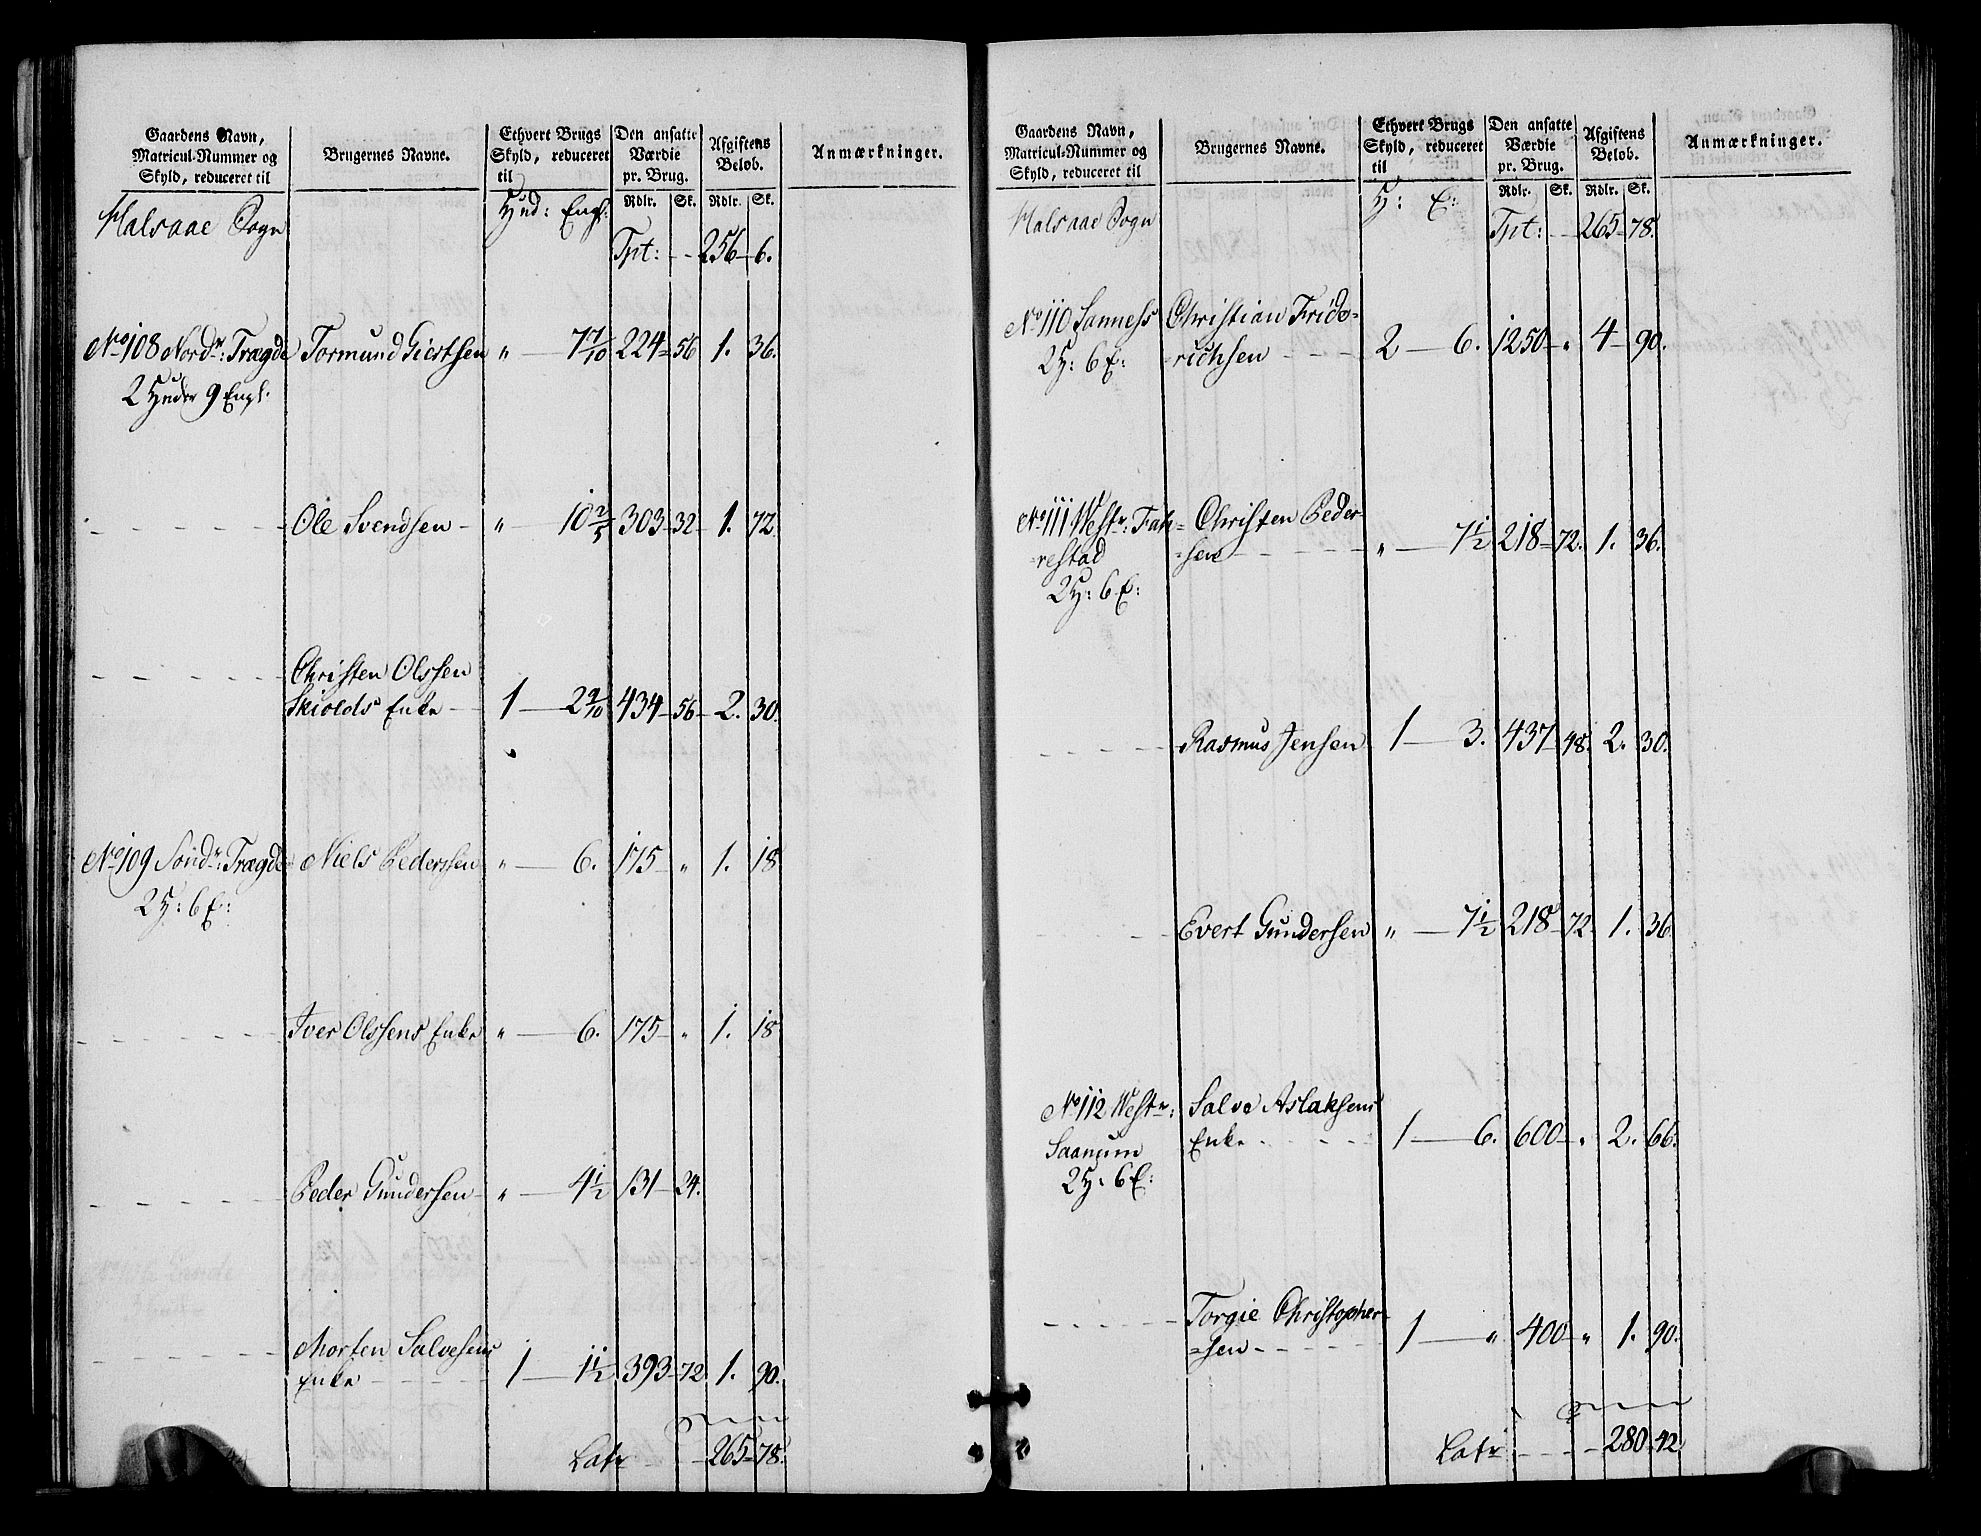 Gaardens Navn, Matricul-Nummer og Skyld, reduceret til | Brugernes Navne. | Ethvert Brugs Skyld, reduceret til | Den ansatte Værdie pr. Brug. | Afgiftens Beløb. | Anmærkninger.
Halsaae Sogn | Hud: Engl: | Rdlr. Sk. | Rdlr. Sk.
Tpt: - - 256 - 6.
No 108 Nordr: Trægde | Tormund Giertsen | " - 7 7/10 | 224 - 56 | 1. 36.
2 Huder 9 Engl:
- - - - - | Ole Svendsen - | " - 10 2/5 | 303 - 32 | 1. 72.
- - - - - | Christen Olssen
Skiolds Enke - | 1 - 2 9/10 | 434 - 56 | 2. 30.
No 109 Søndr: Trægde | Niels Pederssen | " - 6. | 175 - " | 1. 18
2 H: 6 E:
- - - - - | Iver Olssens Enke | " - 6. | 175 - " | 1. 18
- - - - - | Peder Gundersen - | " - 4 1/2 | 131 - 24.
- - - - - | Morten Salvesens
Enke - - - - | 1 - 1 1/2 | 393 - 72 | 1. 90.
Latr - - 265 - 78.
Gaardens Navn, Matricul-Nummer og Skyld, reduceret til | Brugernes Navne. | Ethvert Brugs Skyld, reduceret til | Den ansatte Værdie pr. Brug. | Afgiftens Beløb. | Anmærkninger.
Halsaae Sogn | H: E: | Rdlr. Sk. | Rdlr. Sk.
Tpt: - - 265 - 78.
No 110 Sanness | Christian Fride-
2 H: 6 E: | -richsen - - - | 2 - 6. | 1250 - " | 4 - 90.
No 111 Westr: Fah- | Christen Peder-
-restad | -sen - - - - | " - 7 1/2 | 218 - 72. | 1. 36.
2 H: 6 E:
- - - - - | Rasmus Jensen | 1 - 3. | 437 - 48. | 2. 30.
- - - - - | Evert Gundersen | " - 7 1/2 | 218 - 72 | 1. 36.
No 112 Westr: | Salve Aslaksens
Saanum | Enke - - - - | 1 - 6. | 600 - " | 2. 66.
2 H: 6 E:
- - - - - | Torgie Christopher-
-sen - - - - | 1 - " | 400 - " | 1. 90.
Latr - - - 280 - 42